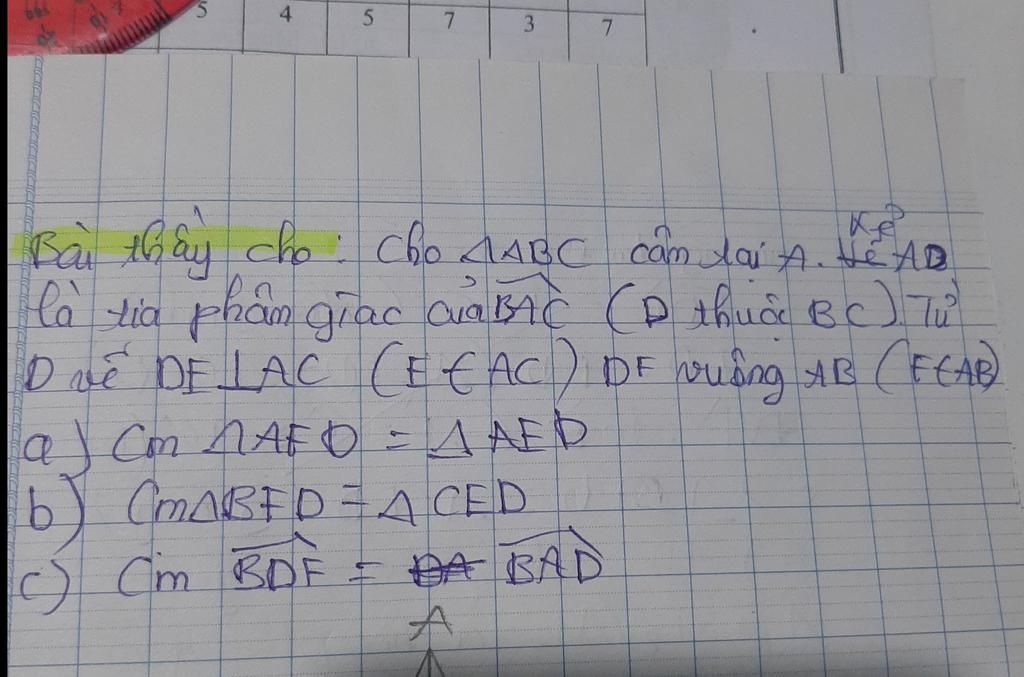 5 4 5 7 3 7
Kẻ
Bài thầy cho: Cho ΔABC cân tại A. AD
là tia phân giác của BAC (D thuộc BC). Từ
D vẽ DE⊥AC (E∈AC) DF vuông AB (F∈AB)
a) Cm ΔAFD = ΔAED
b) CmΔBFD = ΔCED
c) Cm BDF = BAD
A